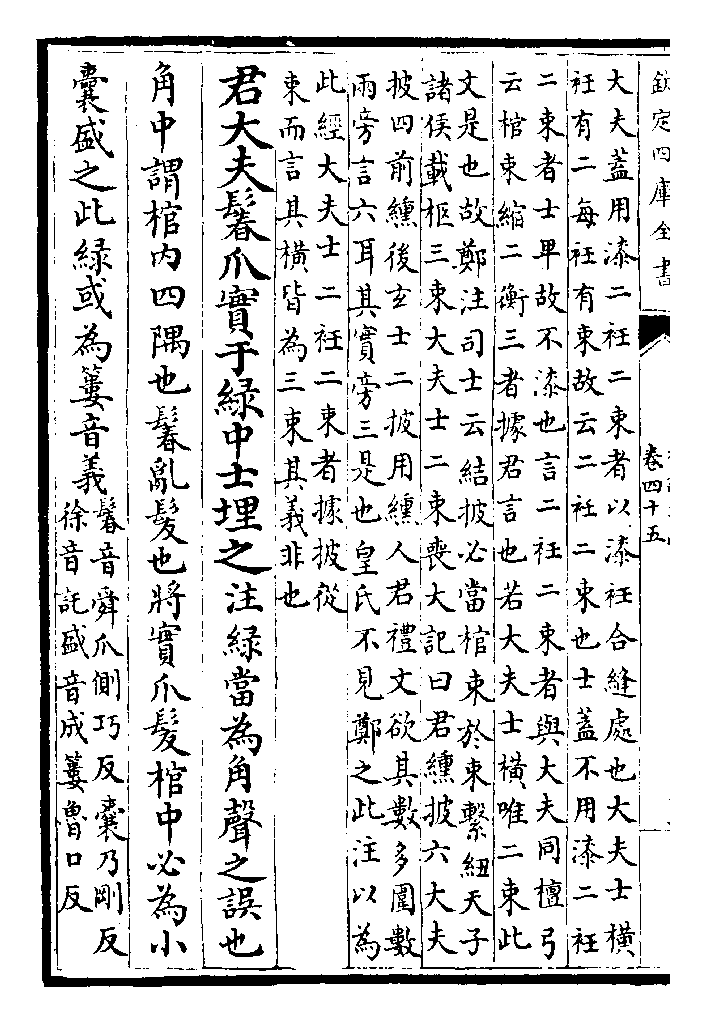 欽定四庫全書
卷四十五
大夫蓋用漆二衽二束者以漆衽合縫處也大夫士橫
衽有二每衽有束故云二衽二束也士蓋不用漆二衽
二束者士卑故不漆也言二衽二束者與大夫同檀弓
云棺束縮二衡三者據君言也若大夫士橫唯二束此
文是也故鄭注司士云結披必當棺束於束繫紐天子
諸侯載柩三束大夫士二束喪大記曰君纁披六大夫
披四前纁後玄士二披用纁人君禮文欲其數多圍數
兩旁言六耳其實旁三是也皇氏不見鄭之此注以為
此經大夫士二衽二束者據披從
束而言其橫皆為三束其義非也
君大夫鬊爪實于緑中士埋之注緑當為角聲之誤也
角中謂棺内四隅也鬊亂髮也將實爪髮棺中必為小
囊盛之此緑或為簍音義鬊音舜爪側巧反囊乃剛反
徐音託盛音成簍魯口反